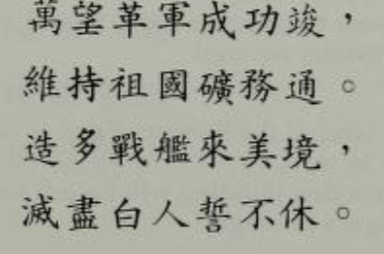 萬望革軍成功竣，
維持祖國礦務通。
造多戰艦來美境，
滅盡白人誓不休。